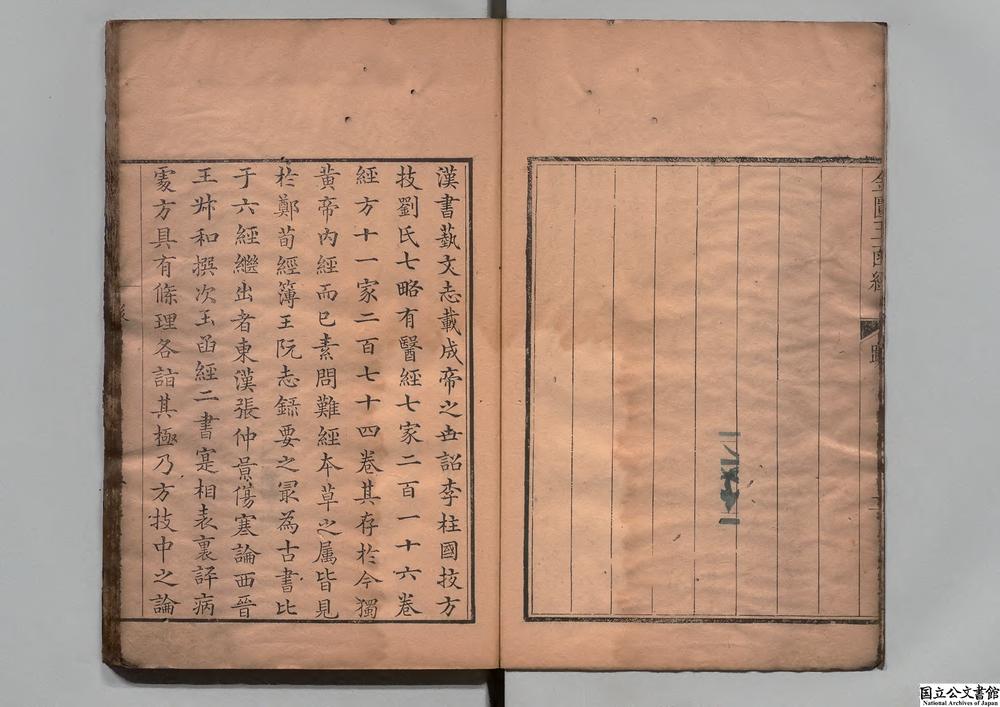 金匱玉函經
漢書蓺文志載成帝之世詔李柱國技方
技劉氏七略有醫經七家二百一十六卷
經方十一家二百七十四卷其存於今獨
黄帝內經而已素問難經本草之屬皆見
於鄭荀經簿王阮志錄要之冣為古書比
于六經繼出者東漢張仲景傷寒論西晉
王叔和撰次玉函經二書寔相表裏評病
處方具有條理各詣其極乃方技中之論
国立公文書館
National Archives of Japan